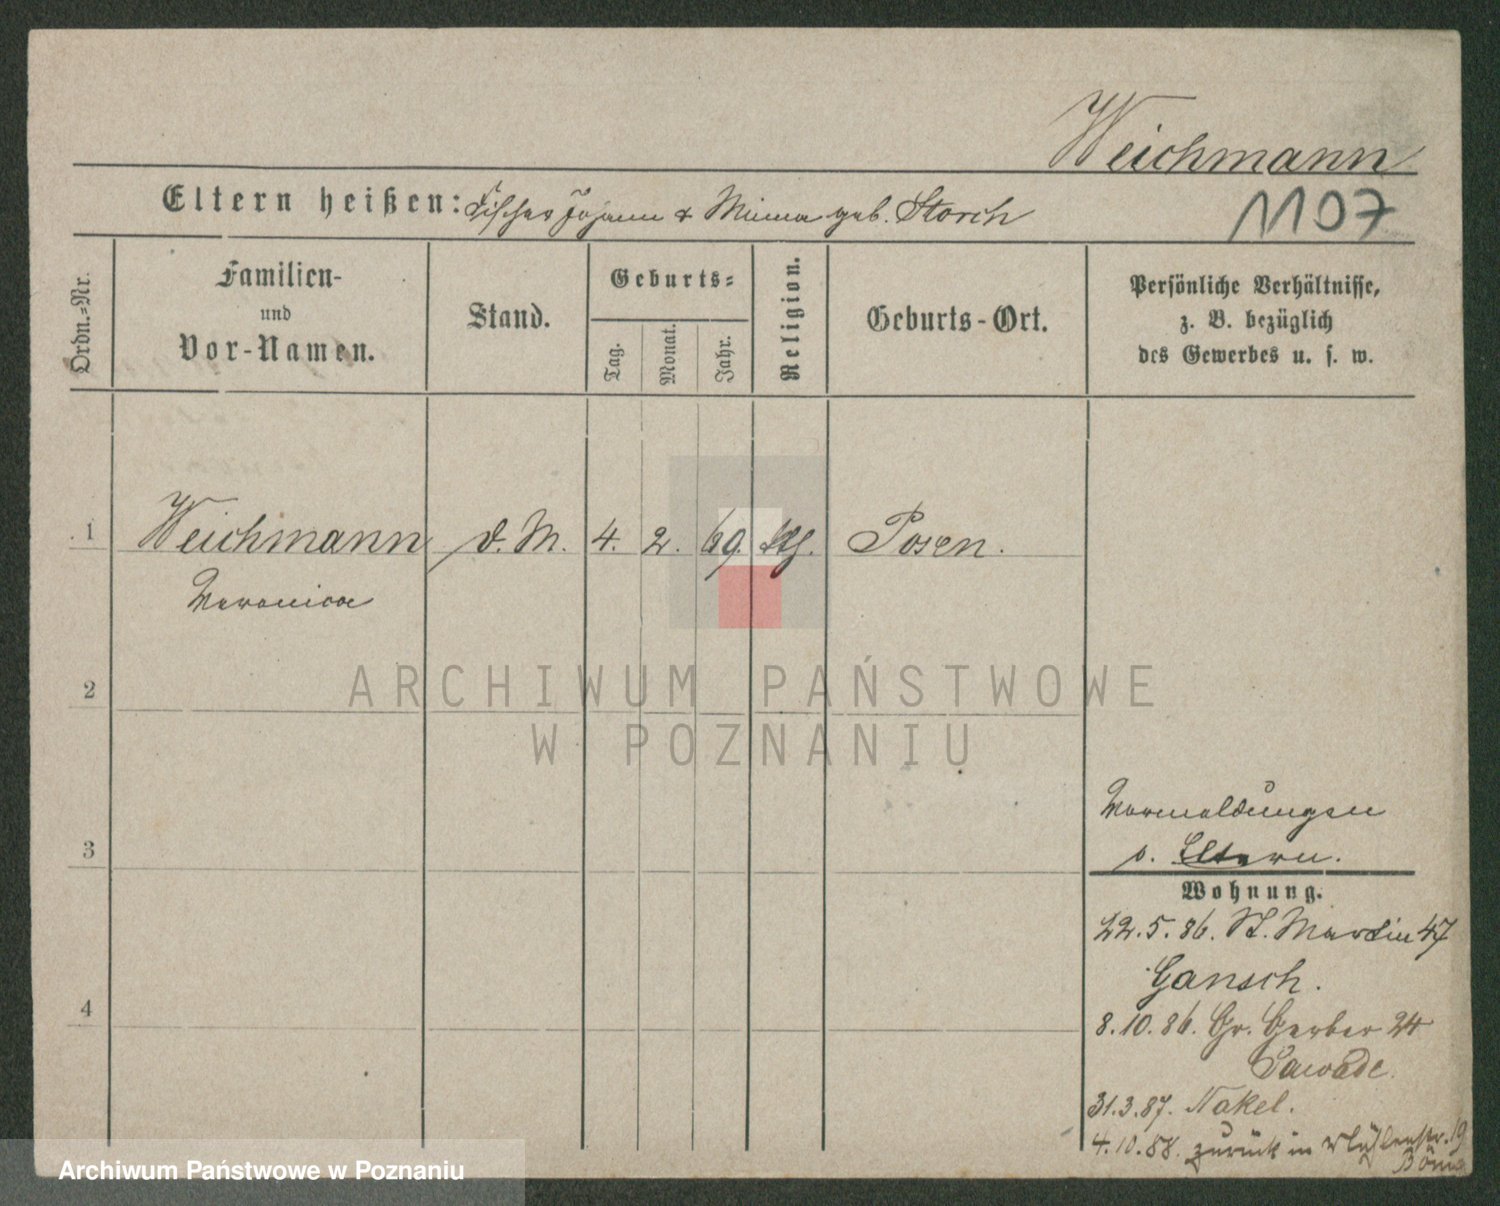 Weichmann
1107
Eltern heißen: Fischer Johann & Minna geb. Storch
Ordn.=Nr.
Familien-
und
Vor-Namen.
Stand.
Geburts=
Tag.
Monat.
Jahr.
Religion.
Geburts-Ort.
Persönliche Verhältnisse,
z. B. bezüglich
des Gewerbes u. s. w.
1 Weichmann d. M. 4. 2. 69. Posen.
Veronica
2
3
4
Vermeldungen
s. Eltern.
Wohnung.
22.5.86. St. Martin 47
Gansch.
8.10.86. Gr. Gerber 24
Sawade.
31.3.87. Nakel.
4.10.88. zurück in Mühlenstr. 19
ARCHIWUM PAŃSTWOWE
W POZNANIU
Archiwum Państwowe w Poznaniu